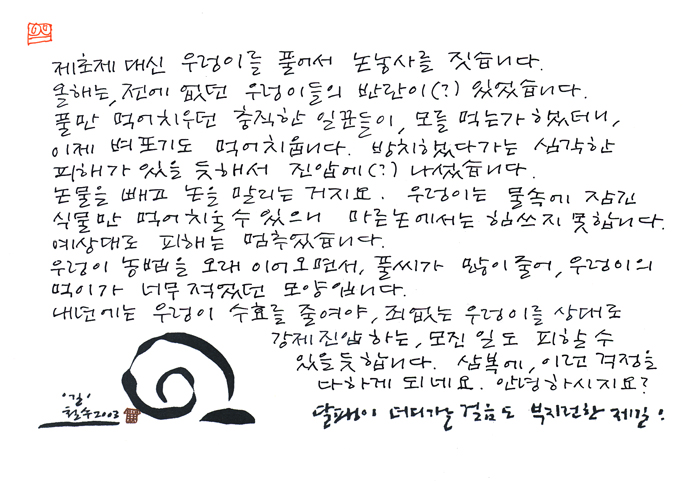 제초제 대신 우렁이를 풀어서 논농사를 짓습니다.
올해는, 전에 없던 우렁이들의 반란이(?) 있었습니다.
풀만 먹어치우던 충직한 일꾼들이, 모를 먹는가 했더니,
이제 벼포기도 먹어치웁니다. 방치했다가는 심각한
피해가 있을 듯해서 진압에(?) 나섰습니다.
논물을 빼고 논을 말리는 거지요. 우렁이는 물속에 잠긴
식물만 먹어치울 수 있으니 마른논에서는 힘쓰지 못합니다.
예상대로 피해는 멈추었습니다.
우렁이 농법을 오래 이어오면서, 풀씨가 많이 줄어, 우렁이의
먹이가 너무 적었던 모양입니다.
내년에는 우렁이 수효를 줄여야, 죄없는 우렁이를 상대로
강제진압하는, 모진 일도 피할 수
있을듯합니다. 삼복에, 이런 걱정을
다하게 되네요. 안녕하시지요?
달팽이 더디가는 걸음도 부지런한 제길!
'길'
철수2003